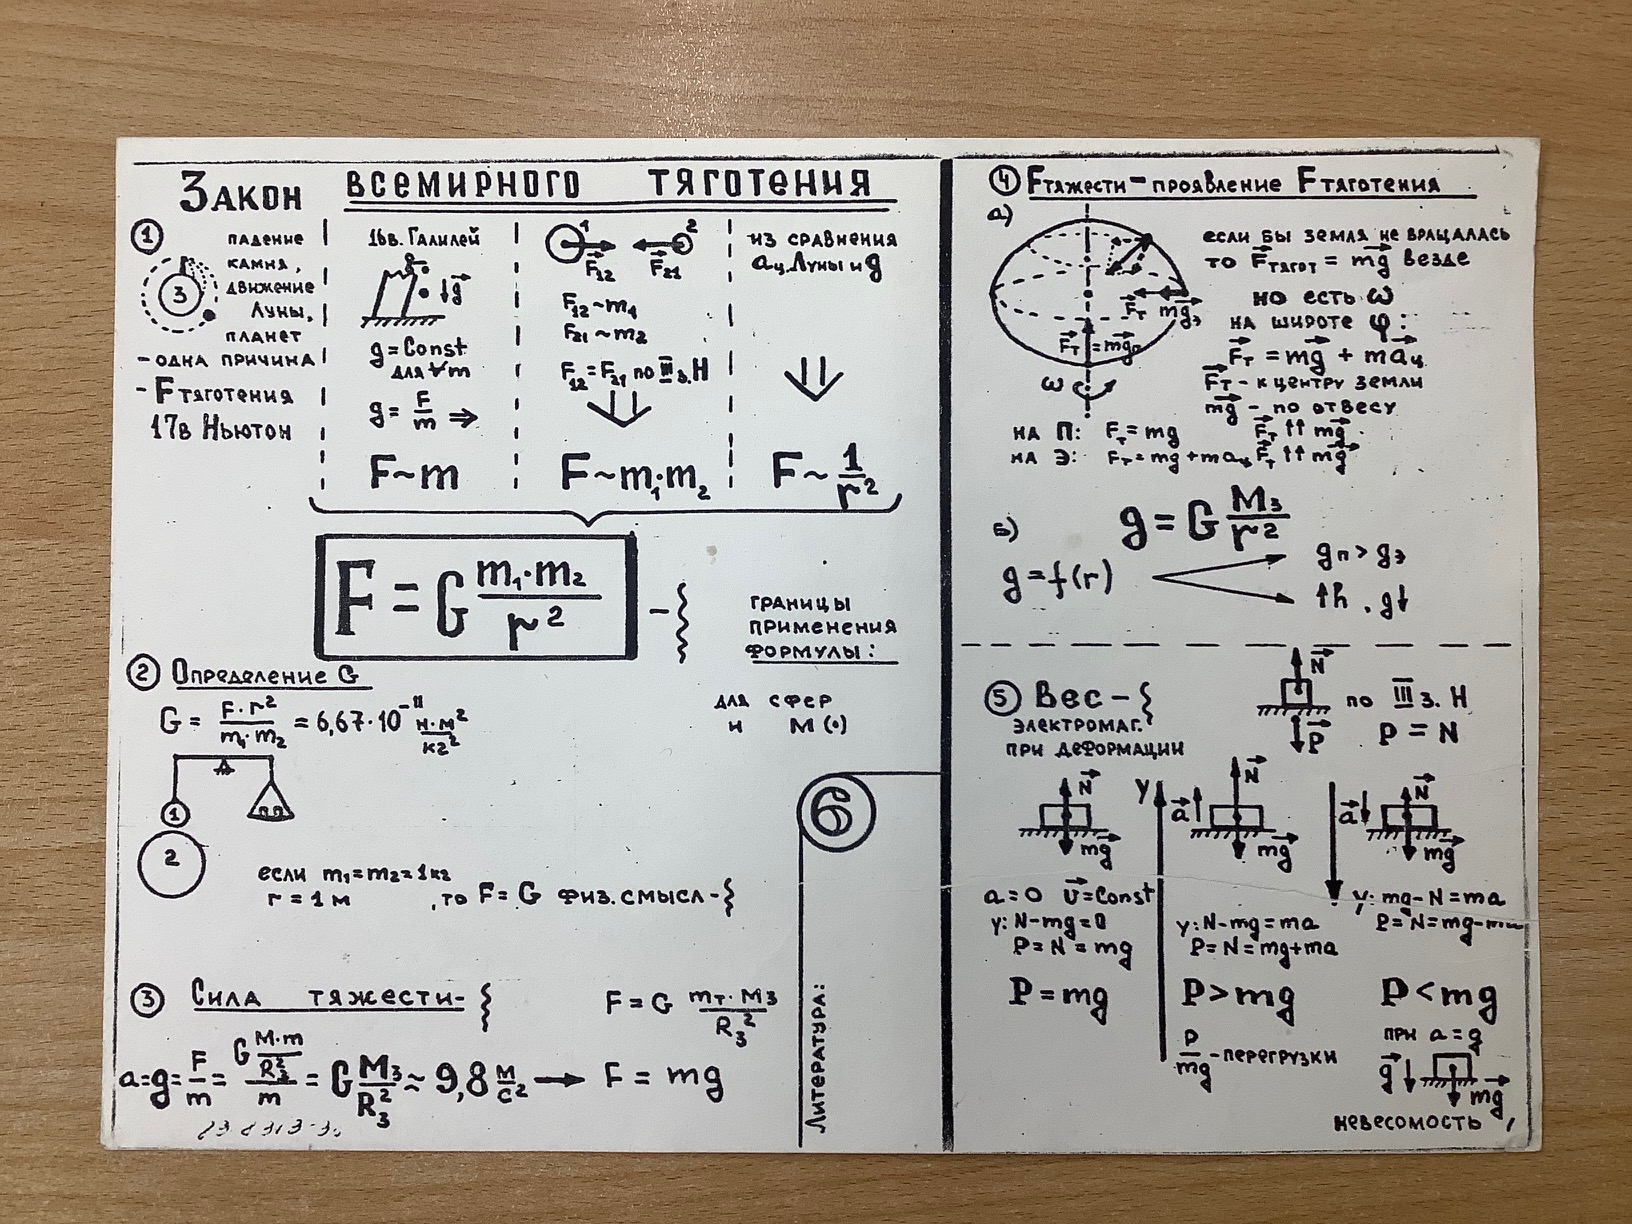 Закон всемирного тяготения
①
3
падение
камня,
движение
Луны,
планет
- одна причина
- Fтяготения
17в Ньютон
16в. Галилей
g⃗
g = Const
для ∀m
g = F/m ⇒
F ~ m
1 2
F⃗₁₂ F⃗₂₁
F₁₂ ~ m₁
F₂₁ ~ m₂
F₁₂ = F₂₁ по III з. Н
F ~ m₁·m₂
из сравнения
aц. Луны и g
F ~ 1/r²
F = G m₁·m₂/r² -
границы
применения
формулы:
для сфер
и М(·)
② Определение G
G = F·r²/m₁·m₂ = 6,67·10⁻¹¹ Н·м²/кг²
1
2
если m₁=m₂=1кг
r = 1м , то F = G физ. смысл -
③ Сила тяжести - F = G mт·Mз/Rз²
a=g= F/m = G M·m/Rз² / m = G Mз/Rз² ≈ 9,8 м/с² → F = mg
6
Литература:
④ Fтяжести - проявление Fтяготения
а)
если бы Земля не вращалась
то F⃗тягот = mg⃗ везде
но есть ω
на широте φ:
F⃗т = mg⃗ + ma⃗ц
F⃗т - к центру Земли
mg⃗ - по отвесу
F⃗т mg⃗э
F⃗т = mg⃗п
ω
на П: Fт = mg F⃗т ↑↑ mg⃗
на Э: Fт = mg + maц, F⃗т ↑↑ mg⃗
б)
g = G Mз/r²
g = f(r)
gп > gэ
↑h, g↓
⑤ Вес -
электромаг.
при деформации
N⃗
P⃗
по III з. Н
P = N
N⃗
mg⃗
a = 0 v⃗ = Const
y: N - mg = 0
P = N = mg
P = mg
y
a⃗ N⃗
mg⃗
y: N - mg = ma
P = N = mg + ma
P > mg
P/mg - перегрузки
a⃗ N⃗
mg⃗
y: mg - N = ma
P = N = mg - ma
P < mg
при a = g
g⃗
mg⃗
невесомость